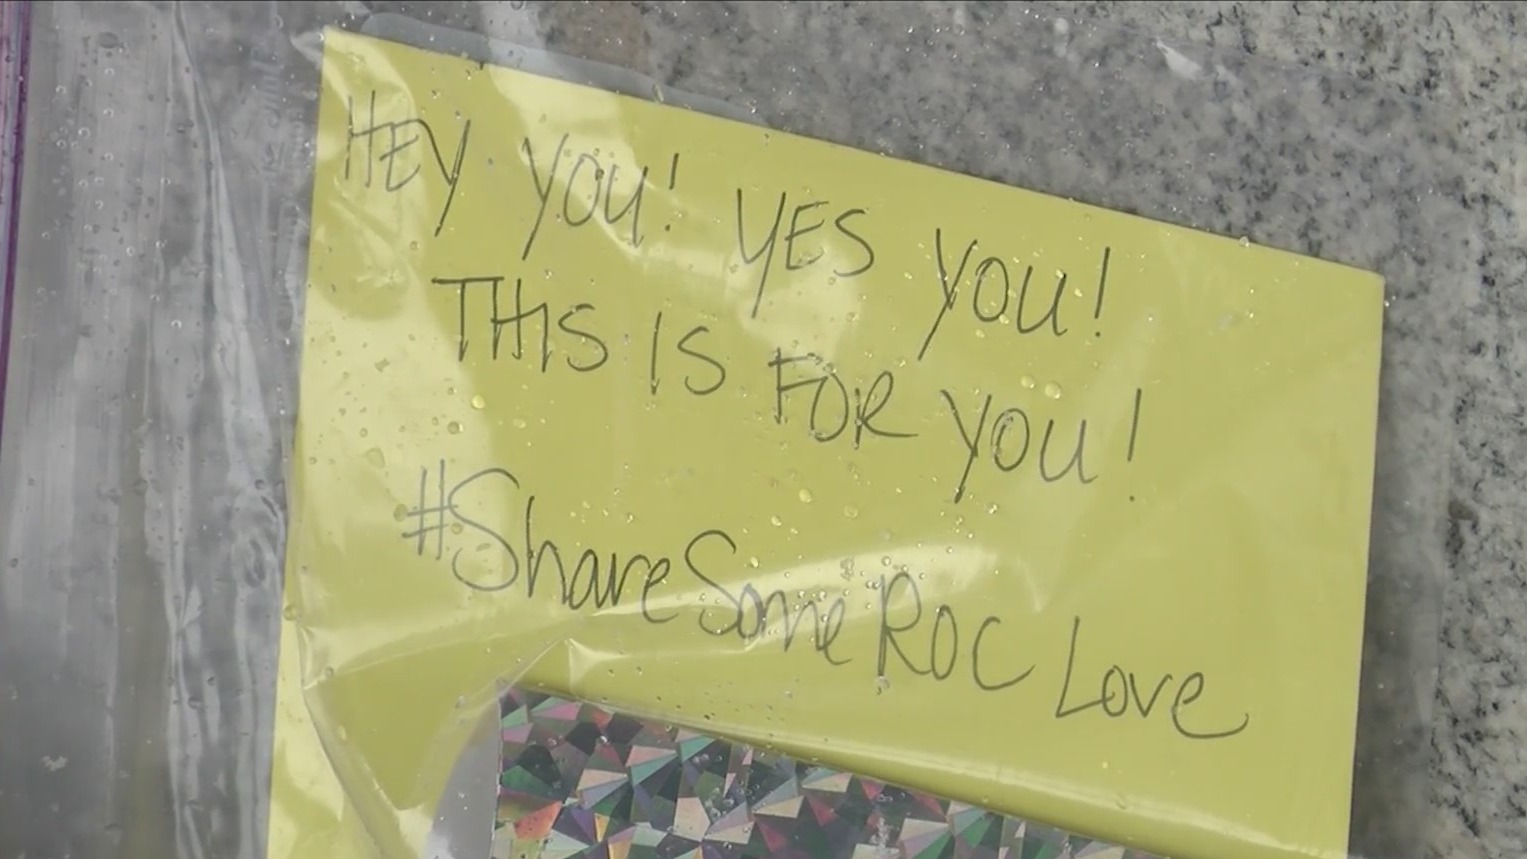 HEY YOU! YES YOU!
THIS IS FOR YOU!
#ShareSomeROC Love